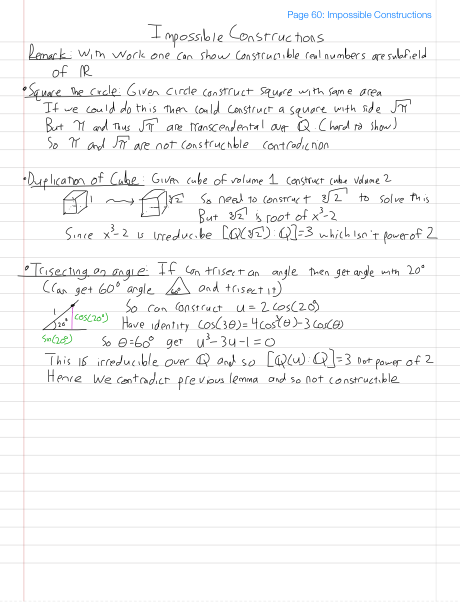 Page 60: Impossible Constructions
Impossible Constructions
Remark: With work one can show constructible real numbers are subfield
of ℝ
• Square the circle: Given circle construct square with same area
If we could do this then could construct a square with side √π
But π and thus √π are transcendental over Q (hard to show)
So π and √π are not constructible contradiction
• Duplication of Cube: Given cube of volume 1 construct cube volume 2
1 ∛2 So need to construct ∛2 to solve this
But ∛2 is root of x³-2
Since x³-2 is irreducibe [Q(∛2):Q]=3 which isn't power of 2
• Trisecting an angle: If can trisect an angle then get angle with 20°
(Can get 60° angle 60° and trisect it)
So can construct u = 2cos(20)
1 20° cos(20°) Have identity cos(3θ)=4cos³(θ)-3cos(θ)
sin(20°) So θ=60° get u³-3u-1=0
This is irreducible over Q and so [Q(u):Q]=3 not power of 2
Hence we contradict previous lemma and so not constructible